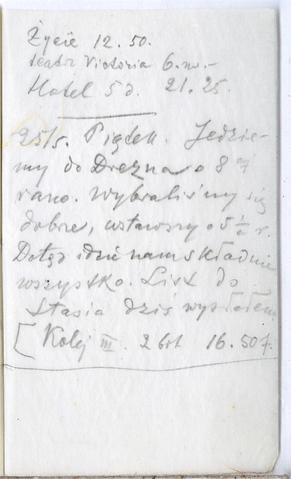 Życie 12.50.
teatr Victoria 6.m.-
Hotel 5 d. 21.25.
25/5. Piątek. Jedzie-
my do Drezna o 8
rano. Wybraliśmy się
dobrze, wstawszy o 5 ½ r.
Dotąd idzie nam składnie
wszystko. List do
Stasia dziś wysłałem.
[Kolej III. 2 bil 16.50 f.